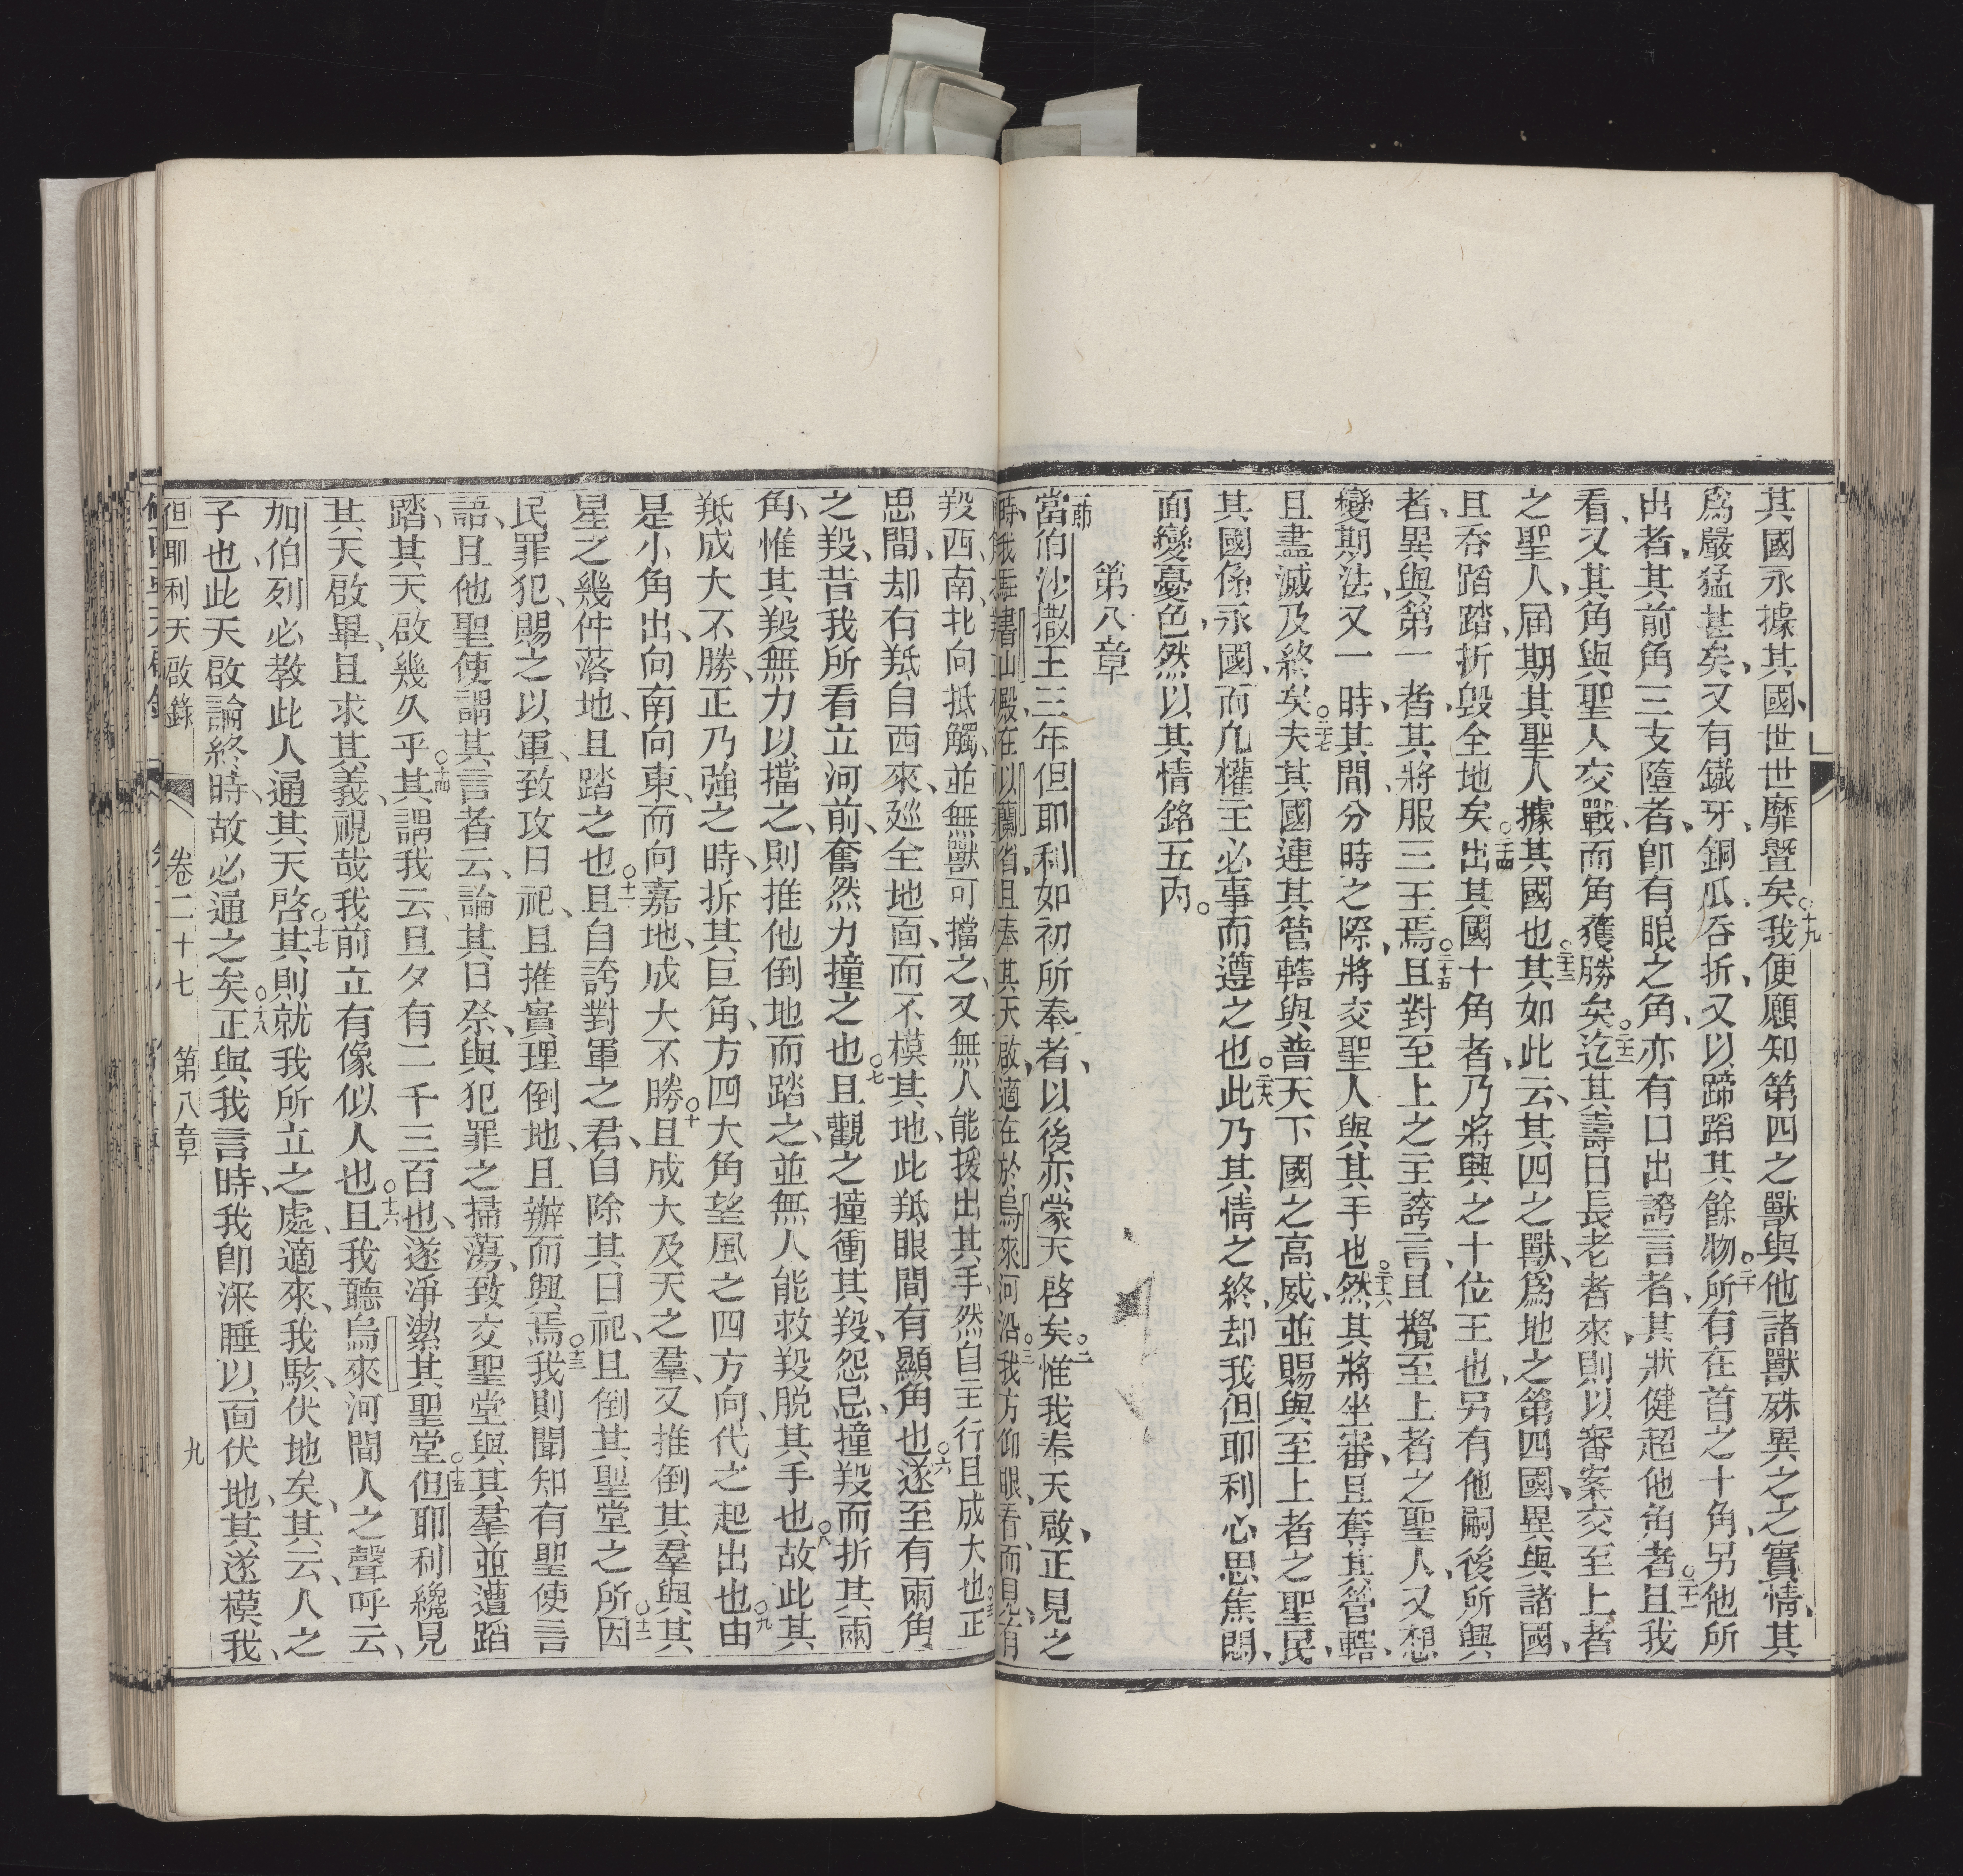 其國永據其國世世靡曁矣○十九我使願知第四之獸與他諸獸殊異之之實情其
爲嚴猛甚矣又有鐵牙銅瓜吞折又以蹄蹈其餘物○二十所有在首之十角另他所
出者其前角三支隨者卽有眼之角亦有口出誇言者其狀健超他角者○二十一且我
看又其角與聖人交戰而角獲勝矣○二十二迄其壽日長老者來則以審案交至上者
之聖人届期其聖人據其國也○二十三其如此云其四之獸爲地之第四國異與諸國
且吞蹈踏折毀全地矣○二十四出其國十角者乃將興之十位王也另有他嗣後所興
者異與第一者其將服三王焉○二十五且對至上之主誇言且攪至上者之聖人又想
變期法又一時其間分時之際將交聖人與其手也○二十六然其將坐審且奪其管轄
且盡滅及終矣○二十七夫其國連其管轄與普天下國之高威並賜與至上者之聖民
其國係永國而凢權主必事而遵之也○二十八此乃其情之終却我但耶利心思焦悶
面變憂色然以其情銘五內○
第八章
第一節
當伯沙撒王三年但耶利如初所奉者以後亦蒙天啓矣○二惟我奉天啟正見之
時我在書山殿在以蘭省且奉其天啟適在於烏來河沿○三我方仰眼看而見有
羖西南北向抵觸並無獸可擋之又無人能援出其手然自主行且成大也○五正
思間却有羝自西來廵全地面而不模其地此羝眼間有顯角也○六遂至有兩角
之羖昔我所看立河前奮然力撞之也○七且觀之撞衝其羖怨忌撞羖而折其兩
角惟其羖無力以擋之則推他倒地而踏之並無人能救羖脫其手也○八故此其
羝成大不勝正乃強之時拆其巨角方四大角望風之四方向代之起出也○九由
是小角出向南向東而向嘉地成大不勝○十且成大及天之羣又推倒其羣與其
星之幾件落地且踏之也○十一且自誇對軍之君自除其日祀且倒其聖堂之所○十二因
民罪犯賜之以軍致攻日祀且推實理倒地且辦而興焉○十三我則聞知有聖使言
語且他聖使謂其言者云論其日祭與犯罪之掃蕩致交聖堂與其羣並遭蹈
踏其天啟幾久乎○十四其謂我云旦夕有二千三百也遂淨潔其聖堂○十五但耶利纔見
其天啟畢且求其義視哉我前立有像似人也○十六且我聽烏來河間人之聲呼云
加伯列必教此人通其天啓○十七其則就我所立之處適來我駭伏地矣其云人之
子也此天啟論終時故必通之矣○十八正與我言時我卽深睡以面伏地其遂模我
但耶利天啟錄 卷二十七 第八章 九